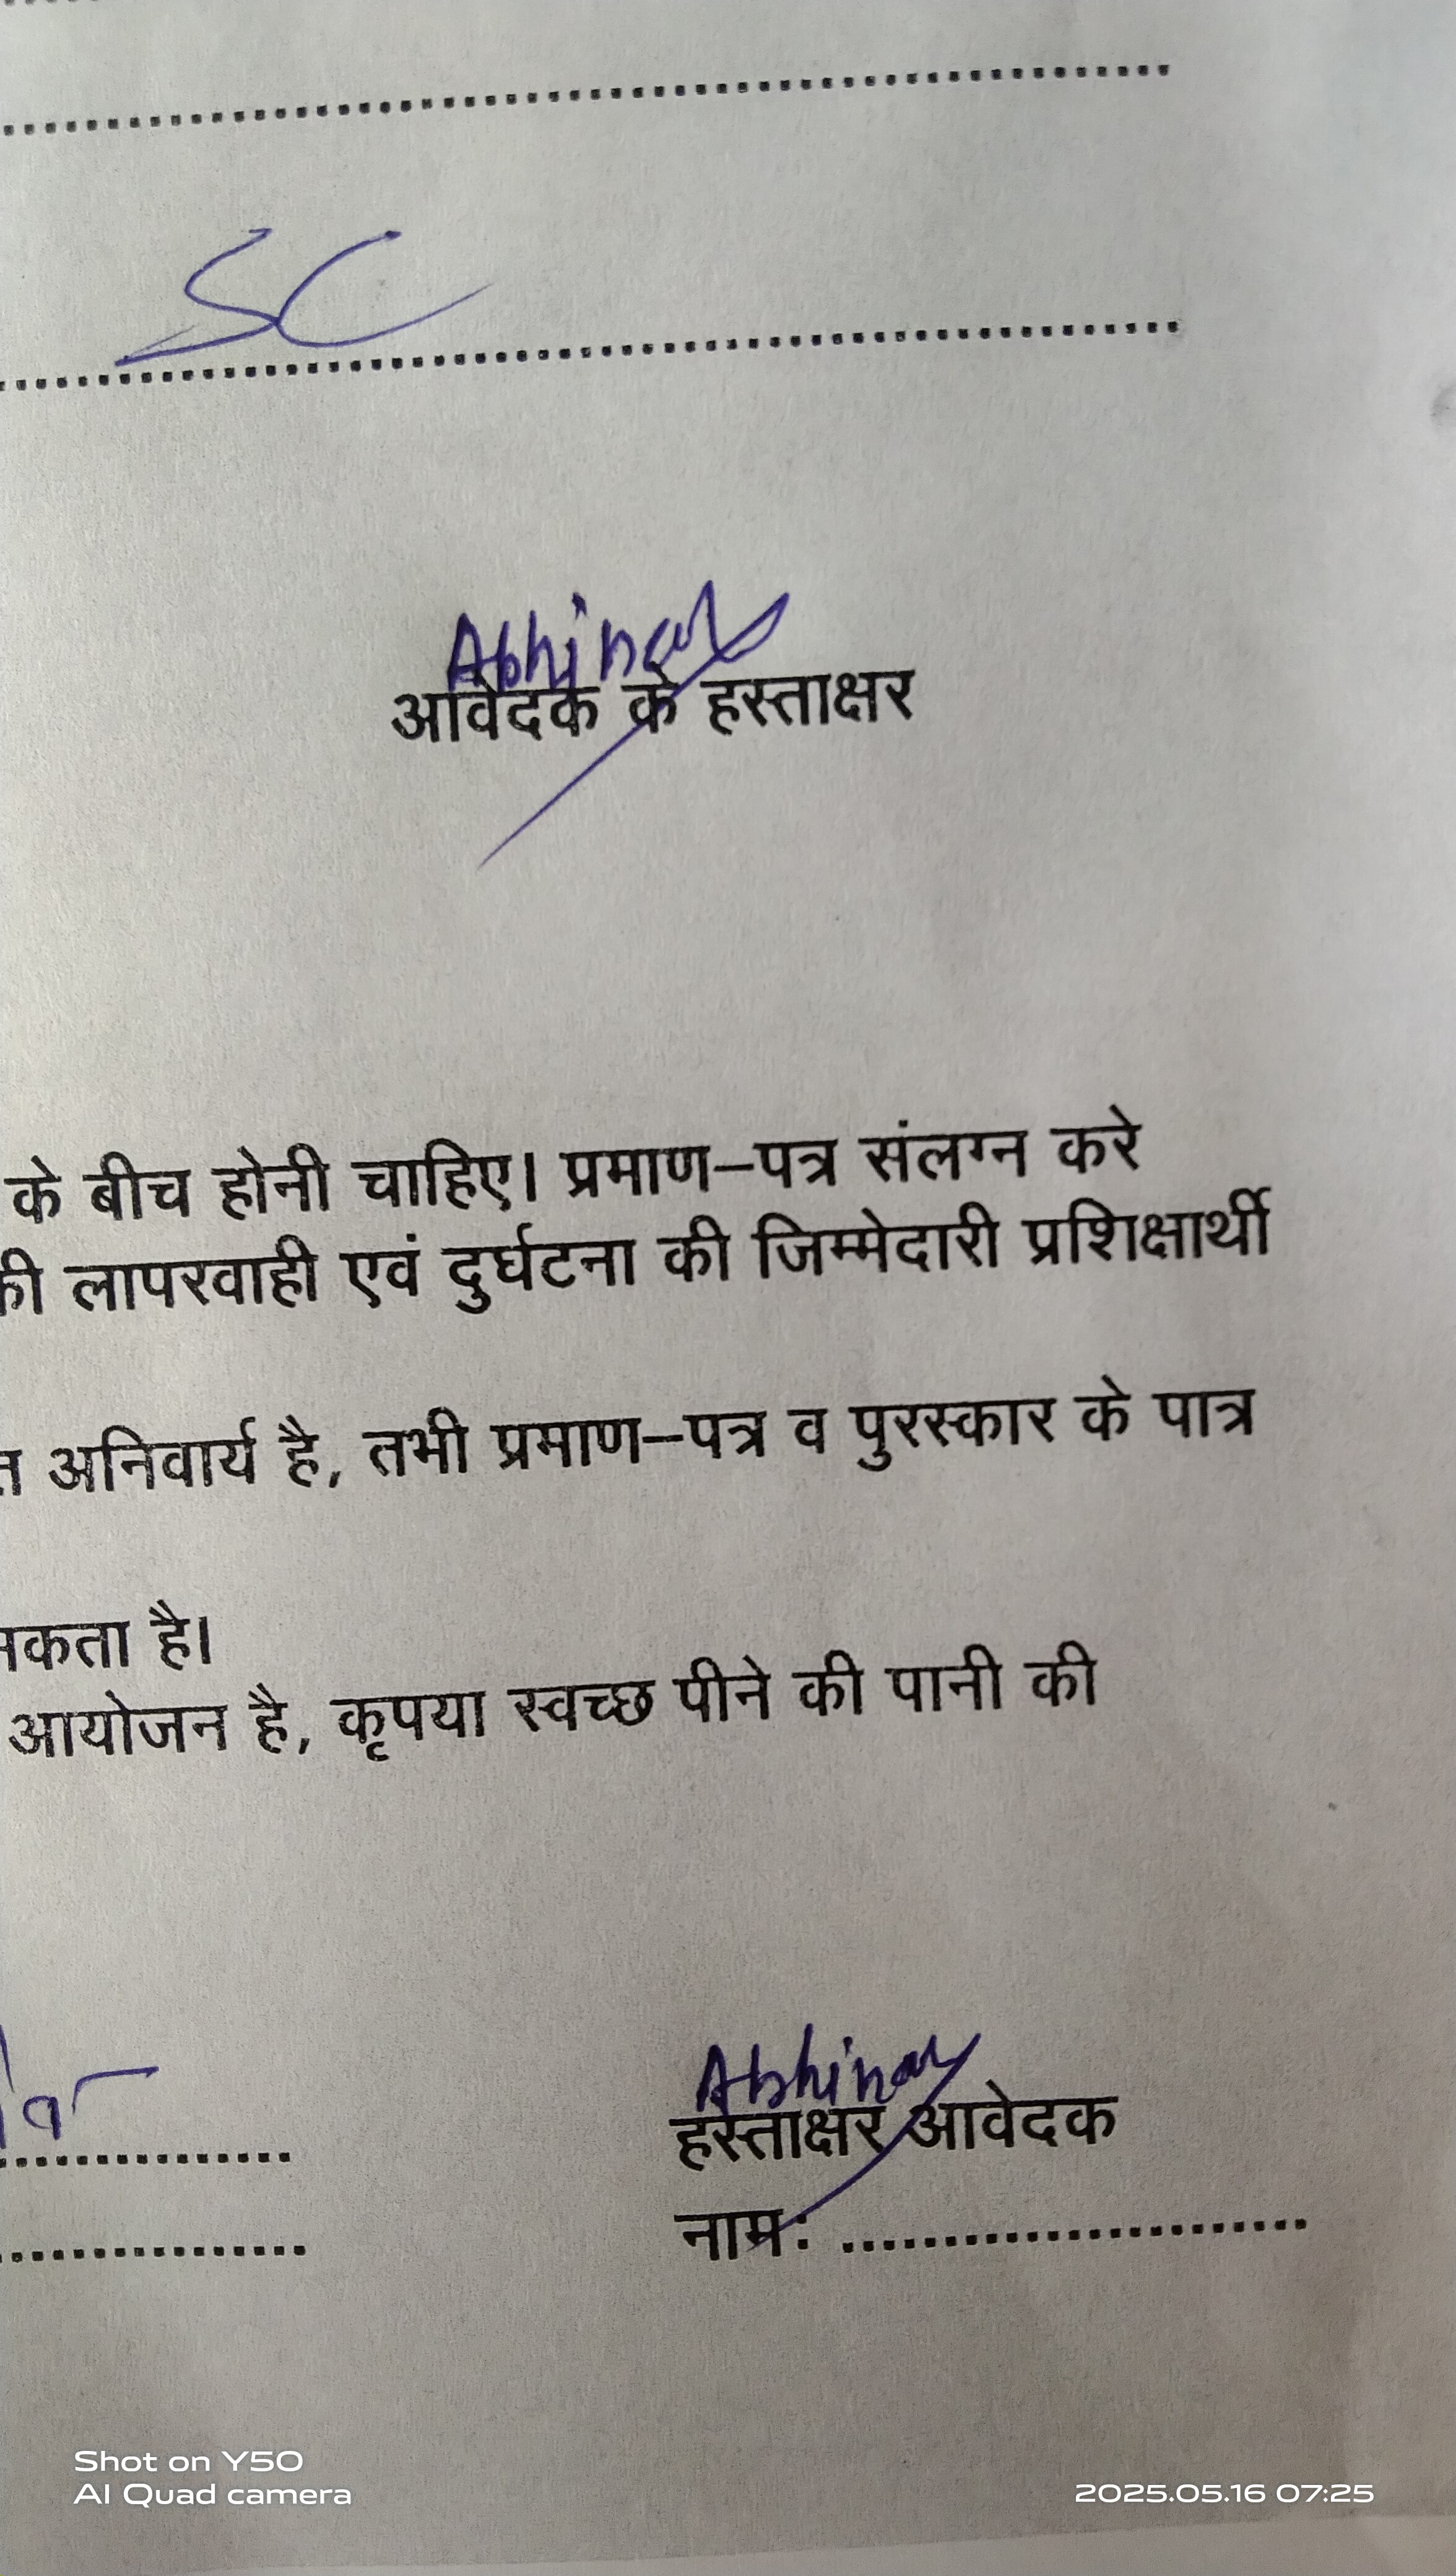 SC
Abhinav
आवेदक के हस्ताक्षर
के बीच होनी चाहिए। प्रमाण–पत्र संलग्न करे
की लापरवाही एवं दुर्घटना की जिम्मेदारी प्रशिक्षार्थी
अनिवार्य है, तभी प्रमाण–पत्र व पुरस्कार के पात्र
है।
आयोजन है, कृपया स्वच्छ पीने की पानी की
Abhinav
हस्ताक्षर आवेदक
नाम: ........................
Shot on Y50
AI Quad camera
2025.05.16 07:25